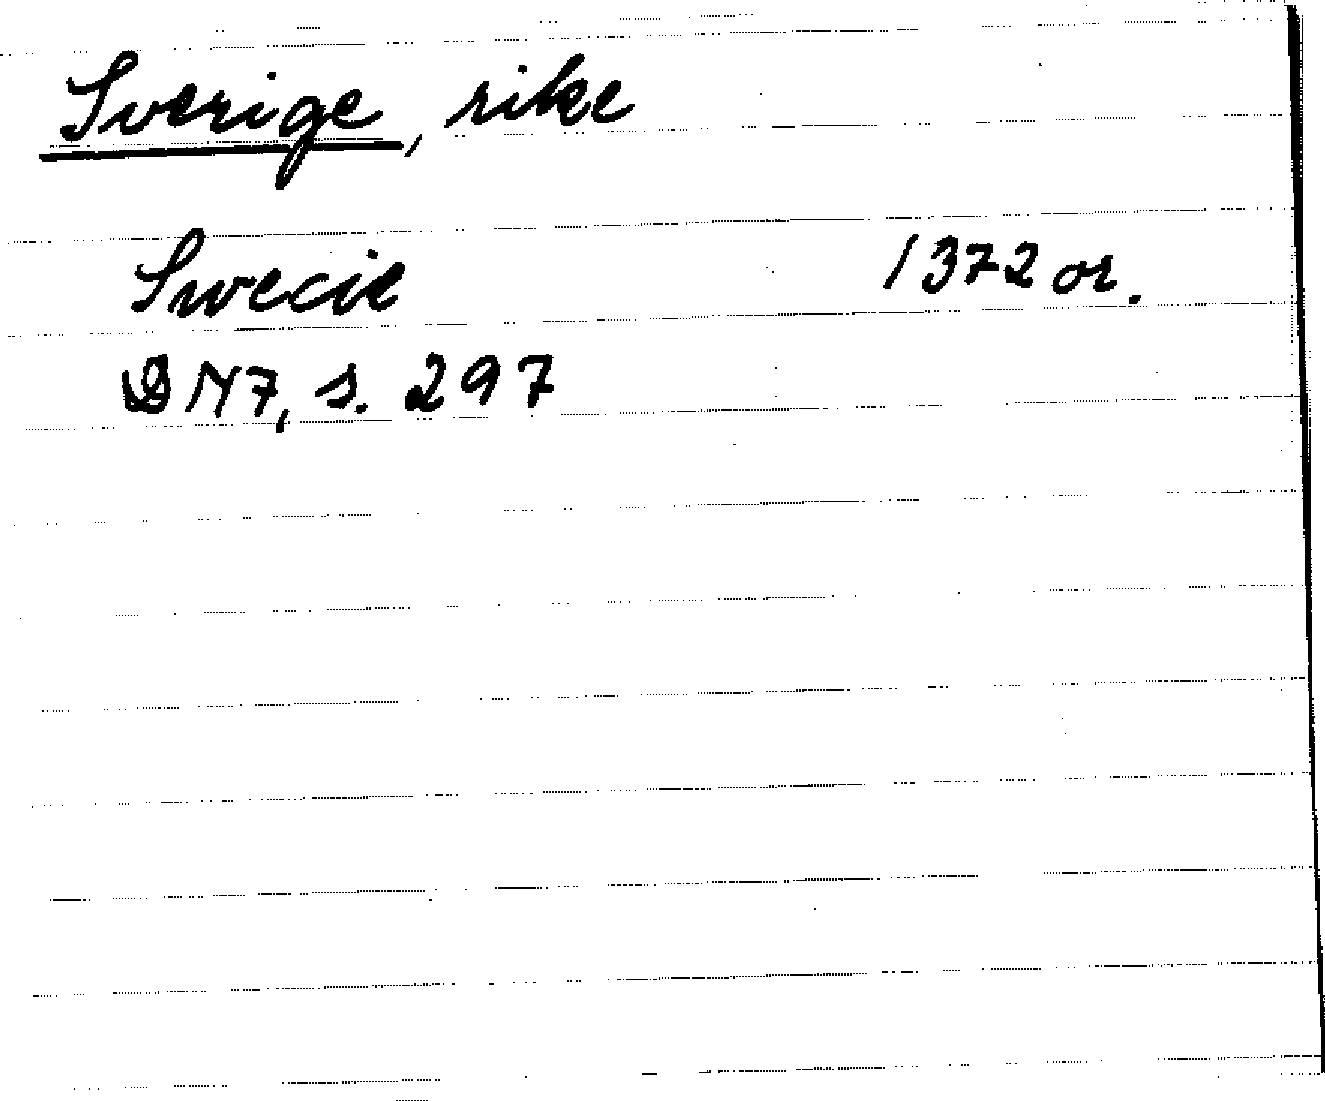 Sverige, rike
Swecie 1372 or.
DN7, s. 297